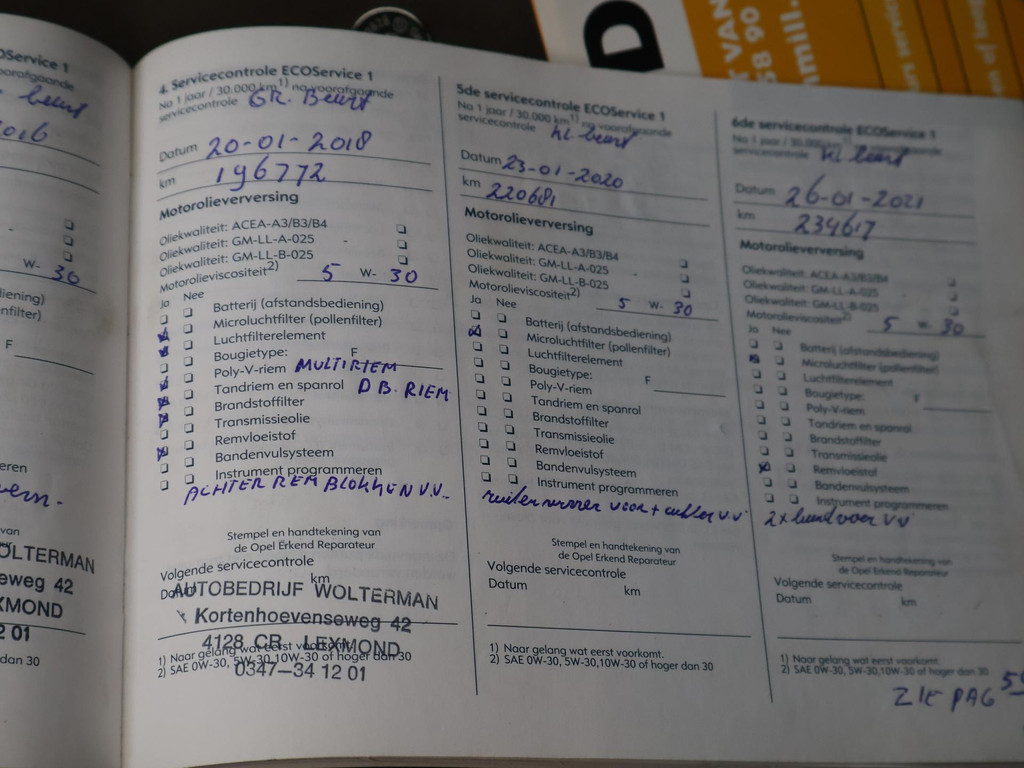 OService 1
voorafgaande
beurt
2016
W- 30
diening)
enfilter)
F
eren
van
OLTERMAN
eweg 42
XMOND
2 01
dan 30
4. Servicecontrole ECOService 1
Na 1 jaar / 30.000 km 1) na voorafgaande
servicecontrole GR. Beurt
Datum 20-01-2018
km 196772
Motorolieverversing
Oliekwaliteit: ACEA-A3/B3/B4
Oliekwaliteit: GM-LL-A-025
Oliekwaliteit: GM-LL-B-025
Motorolieviscositeit2) 5 W- 30
Ja Nee
Batterij (afstandsbediening)
Microluchtfilter (pollenfilter)
Luchtfilterelement
Bougietype: F
Poly-V-riem MULTIRIEM
Tandriem en spanrol D.B. RIEM
Brandstoffilter
Transmissieolie
Remvloeistof
Bandenvulsysteem
Instrument programmeren
ACHTER REMBLOKKEN V.V..
Stempel en handtekening van
de Opel Erkend Reparateur
Volgende servicecontrole
Datum km
AUTOBEDRIJF WOLTERMAN
Kortenhoevenseweg 42
4128 CR LEXMOND
0347-34 12 01
1) Naar gelang wat eerst voorkomt.
2) SAE 0W-30, 5W-30,10W-30 of hoger dan 30
5de servicecontrole ECOService 1
Na 1 jaar / 30.000 km 1) na voorafgaande
servicecontrole kl beurt
Datum 23-01-2020
km 220681
Motorolieverversing
Oliekwaliteit: ACEA-A3/B3/B4
Oliekwaliteit: GM-LL-A-025
Oliekwaliteit: GM-LL-B-025
Motorolieviscositeit2) 5 W- 30
Ja Nee
Batterij (afstandsbediening)
Microluchtfilter (pollenfilter)
Luchtfilterelement
Bougietype: F
Poly-V-riem
Tandriem en spanrol
Brandstoffilter
Transmissieolie
Remvloeistof
Bandenvulsysteem
Instrument programmeren
voor + achter v.v
Stempel en handtekening van
de Opel Erkend Reparateur
Volgende servicecontrole
Datum km
1) Naar gelang wat eerst voorkomt.
2) SAE 0W-30, 5W-30,10W-30 of hoger dan 30
6de servicecontrole ECOService 1
Na 1 jaar / 30.000 km 1) na voorafgaande
servicecontrole kl beurt
Datum 26-01-2021
km 234617
Motorolieverversing
Oliekwaliteit: ACEA-A3/B3/B4
Oliekwaliteit: GM-LL-A-025
Oliekwaliteit: GM-LL-B-025
Motorolieviscositeit2) 5 W- 30
Ja Nee
Batterij (afstandsbediening)
Microluchtfilter (pollenfilter)
Luchtfilterelement
Bougietype: F
Poly-V-riem
Tandriem en spanrol
Brandstoffilter
Transmissieolie
Remvloeistof
Bandenvulsysteem
Instrument programmeren
2x band voor v.v
Stempel en handtekening van
de Opel Erkend Reparateur
Volgende servicecontrole
Datum km
1) Naar gelang wat eerst voorkomt.
2) SAE 0W-30, 5W-30,10W-30 of hoger dan 30
ZIE PAG
D
VAN
68 90